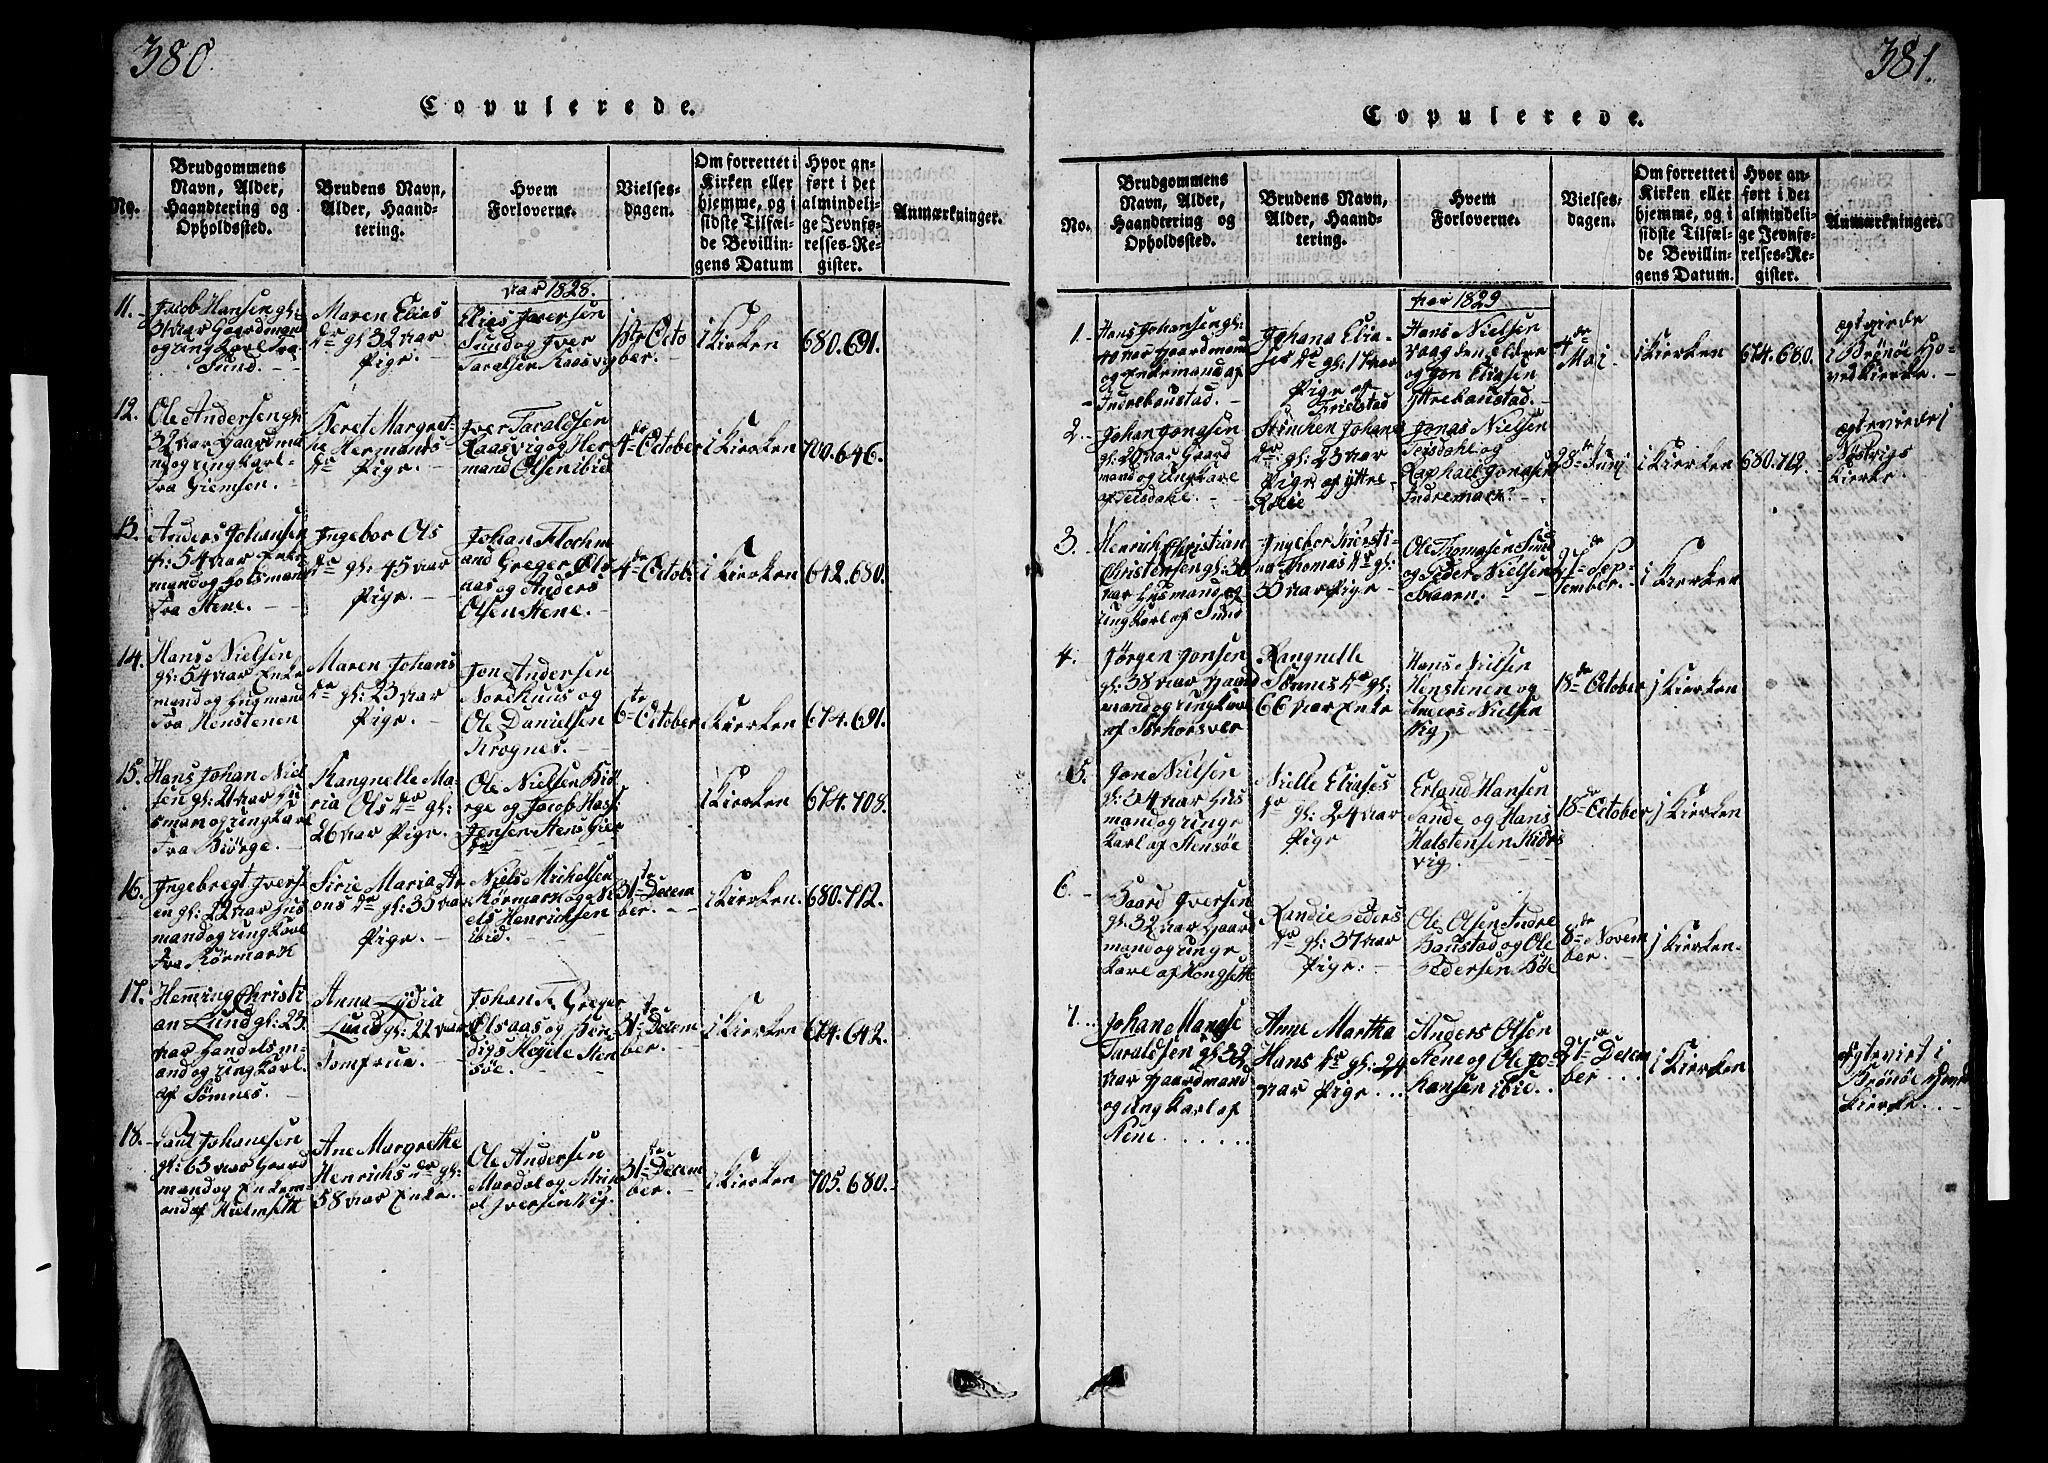 380.
Copulerede.
No.
Brudgommens
Navn, Alder,
Haandtering og
Opholdssted.
Brudens Navn,
Alder, Haand-
tering.
Hvem
Forloverne.
Vielses-
dagen.
Om forrettet i
Kirken eller
hjemme, og i
sidste Tilfæl-
de Bevillin-
gens Datum
Hvor an-
ført i det
almindeli-
ge Jevnfø-
relses-Re-
gister.
Anmærkninger.
Aar 1828.
11.
Jacob Hansen gl:
31 Aar Gaardmand
og ungkarl fra
Sund.
Maren Elias
Dr gl: 32 Aar
Pige.
Elias Iversen
Sund og Iver
Taralsen Raasvig
1ste Octo
ber.
i Kierken
680. 691.
12.
Ole Andersen gl:
32 Aar Gaardma
nd og ungkarl
fra Giemsen.
Beret Margret-
he Hermands
Dr Pige.
Iver Taraldsen
Raasvig og Her
mand Olsen ibid
4de October
i Kierken
700. 646.
13.
Anders Johansen
gl: 54 Aar Enke
mand og
fra Stene.
Ingebor Ols
Dr gl: 45 Aar
Pige.
Johan
and Greger Ols
aas og Anders
Olsen Stene.
4de Octob:
i Kierken
642. 680.
14.
Hans Nielsen
gl: 54 Aar Enke
mand og Husmand
fra Henstenen
Maren Johans
Dr gl: 23 Aar
Pige.
Jon Andersen
Nordhuus og
Ole Danielsen
Krognes.
6te October
i Kierken
674. 691.
15.
Hans Johan Niel
sen gl: 21 Aar Hu
smand og ungkarl
fra Biørge.
Rangnelle Ma-
ria Ols Dr gl:
26 Aar Pige.
Ole Nielsen Biø
rge og Jacob
Jensen
i Kierken
674. 708.
16.
Ingebregt Ivers-
en gl: 22 Aar Hus
mand og ungkarl
fra Rørmark
Sirie Maria Ar
ons Dr gl: 35 Aar
Pige.
Niels Michelsen
Rørmark og Ni
els Henrichsen
ibid.
31te Decem
ber.
i Kierken.
680. 712.
17.
Hemming Christi
an Lund gl: 23
Aar Handelsm
and og ungkarl
af Sømnes.
Anna Lydia
Lund gl: 22 Aar
Jomfrue.
Johan F. Greger
Olsaas og Ben
digs Høyele Sten
søe.
31te Decem
ber.
i Kierken
674. 642.
18.
Paul Johanesen
gl: 63 Aar Gaard
mand og Enkem-
and af Hielmseth
Ane Margrethe
Henrichs Dr gl:
58 Aar Enke.
Ole Andersen
Mardal og
Iversen Vig.
31te Decem
ber.
i Kierken
705. 680.
381.
Copulerede.
No.
Brudgommens
Navn, Alder,
Haandtering og
Opholdssted.
Brudens Navn,
Alder, Haand-
tering.
Hvem
Forloverne.
Vielses-
dagen.
Om forrettet i
Kirken eller
hjemme, og i
sidste Tilfæl-
de Bevillin-
gens Datum.
Hvor an-
ført i det
almindeli-
ge Jevnfø-
relses-Re-
gister.
Anmærkninger.
Aar 1829
1.
Hans Johansen gl:
40 Aar Gaardmand
og Enkemand af
Indrebaustad.
Johana Elia-
ses Dr gl: 17 Aar
Pige af
Frielstad
Hans Nielsen
Vaag den eldre
og Jon Eliasen
Yttrebaustad.
4de
Mai
i Kierken
674. 680.
Egteviede
i Brønøe Ho-
vedkierke.
2.
Johan Jonasen
gl: 20 Aar Gaard
mand og ungkarl
af Teisdahl.
Stinchen Johans
Dr. gl: 23 Aar
Pige af Yttre-
Jonas Nielsen
Teisdahl og
Raphael Jonasen
Indremark
28de Junj
i Kierken
680. 712.
Egteviede i
Kierke.
3.
Henrich Christian
Christensen gl: 30
Aar Husmand og
ungkarl af Sund
Ingebor Kiersti-
na Thomas Dr gl:
35 Aar Pige
Ole Thomasen Sund
og Peder Nielsen
27de Sep-
tember.
i Kierken
4.
Jørgen Jonsen
gl: 38 Aar Gaard
mand og ungkarl
af Torhorsver
Rangnelle
Tønnes Dr gl:
66 Aar Enke
Hans Nilsen
Henstenen og
Anders Nielsen
Vig,
18de October
i Kierken
5.
Jon Nielsen
gl: 34 Aar Hus
mand og unge
karl af Stensøe
Nielle Eliases
Dr gl: 24 Aar
Pige
Erland Hansen
Sande og Hans
Halstensen
vig.
18de October
i Kierken
6.
Baard Iversen
gl: 32 Aar Gaard
mand og unge
karl af Hongseth
Randie Peders
Dr gl: 37 Aar
Pige.
Ole Olsen Indre
Baustad og Ole
Pedersen Bøe
8de Novem
ber.
i Kierken
7.
Johan Mangse
Taraldsen gl: 32
Aar Gaardmand
og ungkarl af
Nene
Anne Martha
Hans Dr gl: 24
Aar Pige
Anders Olsen
Nene og Ole Jo-
hansen ibid.
27de Decem
ber
i Kierken
Egteviet i
Brønøe Hoved
kierke.